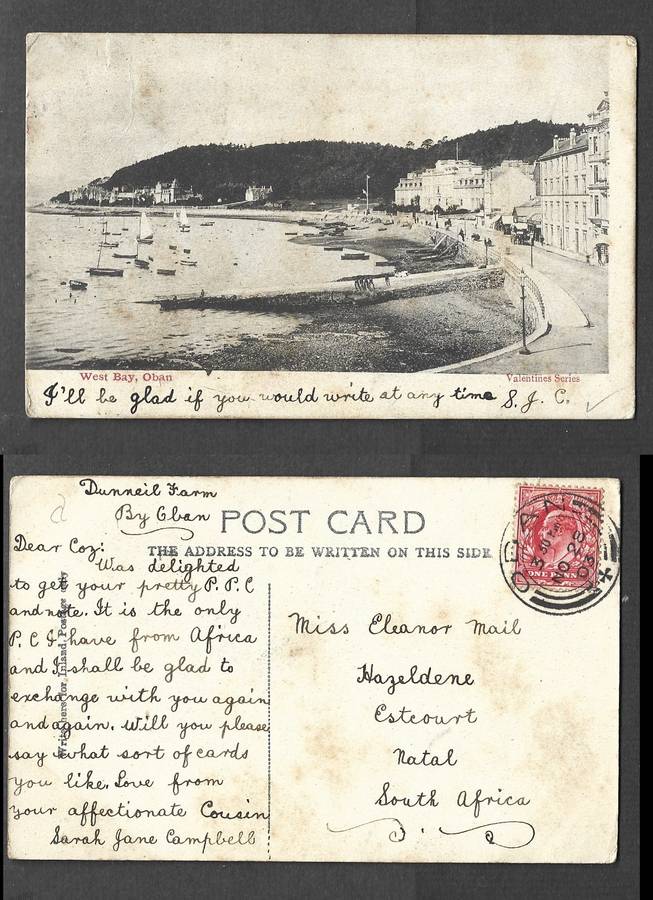 West Bay, Oban
Valentines Series
I'll be glad if you would write at any time S. J. C.
Dunneil Farm
By Oban
POST CARD
THE ADDRESS TO BE WRITTEN ON THIS SIDE
Dear Coz:
Was delighted
to get your pretty P. P. C
and note. It is the only
P. C I have from Africa
and I shall be glad to
exchange with you again
and again. Will you please
say what sort of cards
you like. Love from
your affectionate Cousin
Sarah Jane Campbell
Write here for Inland Postage only
Miss Eleanor Mail
Hazeldene
Estcourt
Natal
South Africa
OBAN
NO 26
03
ONE PENNY